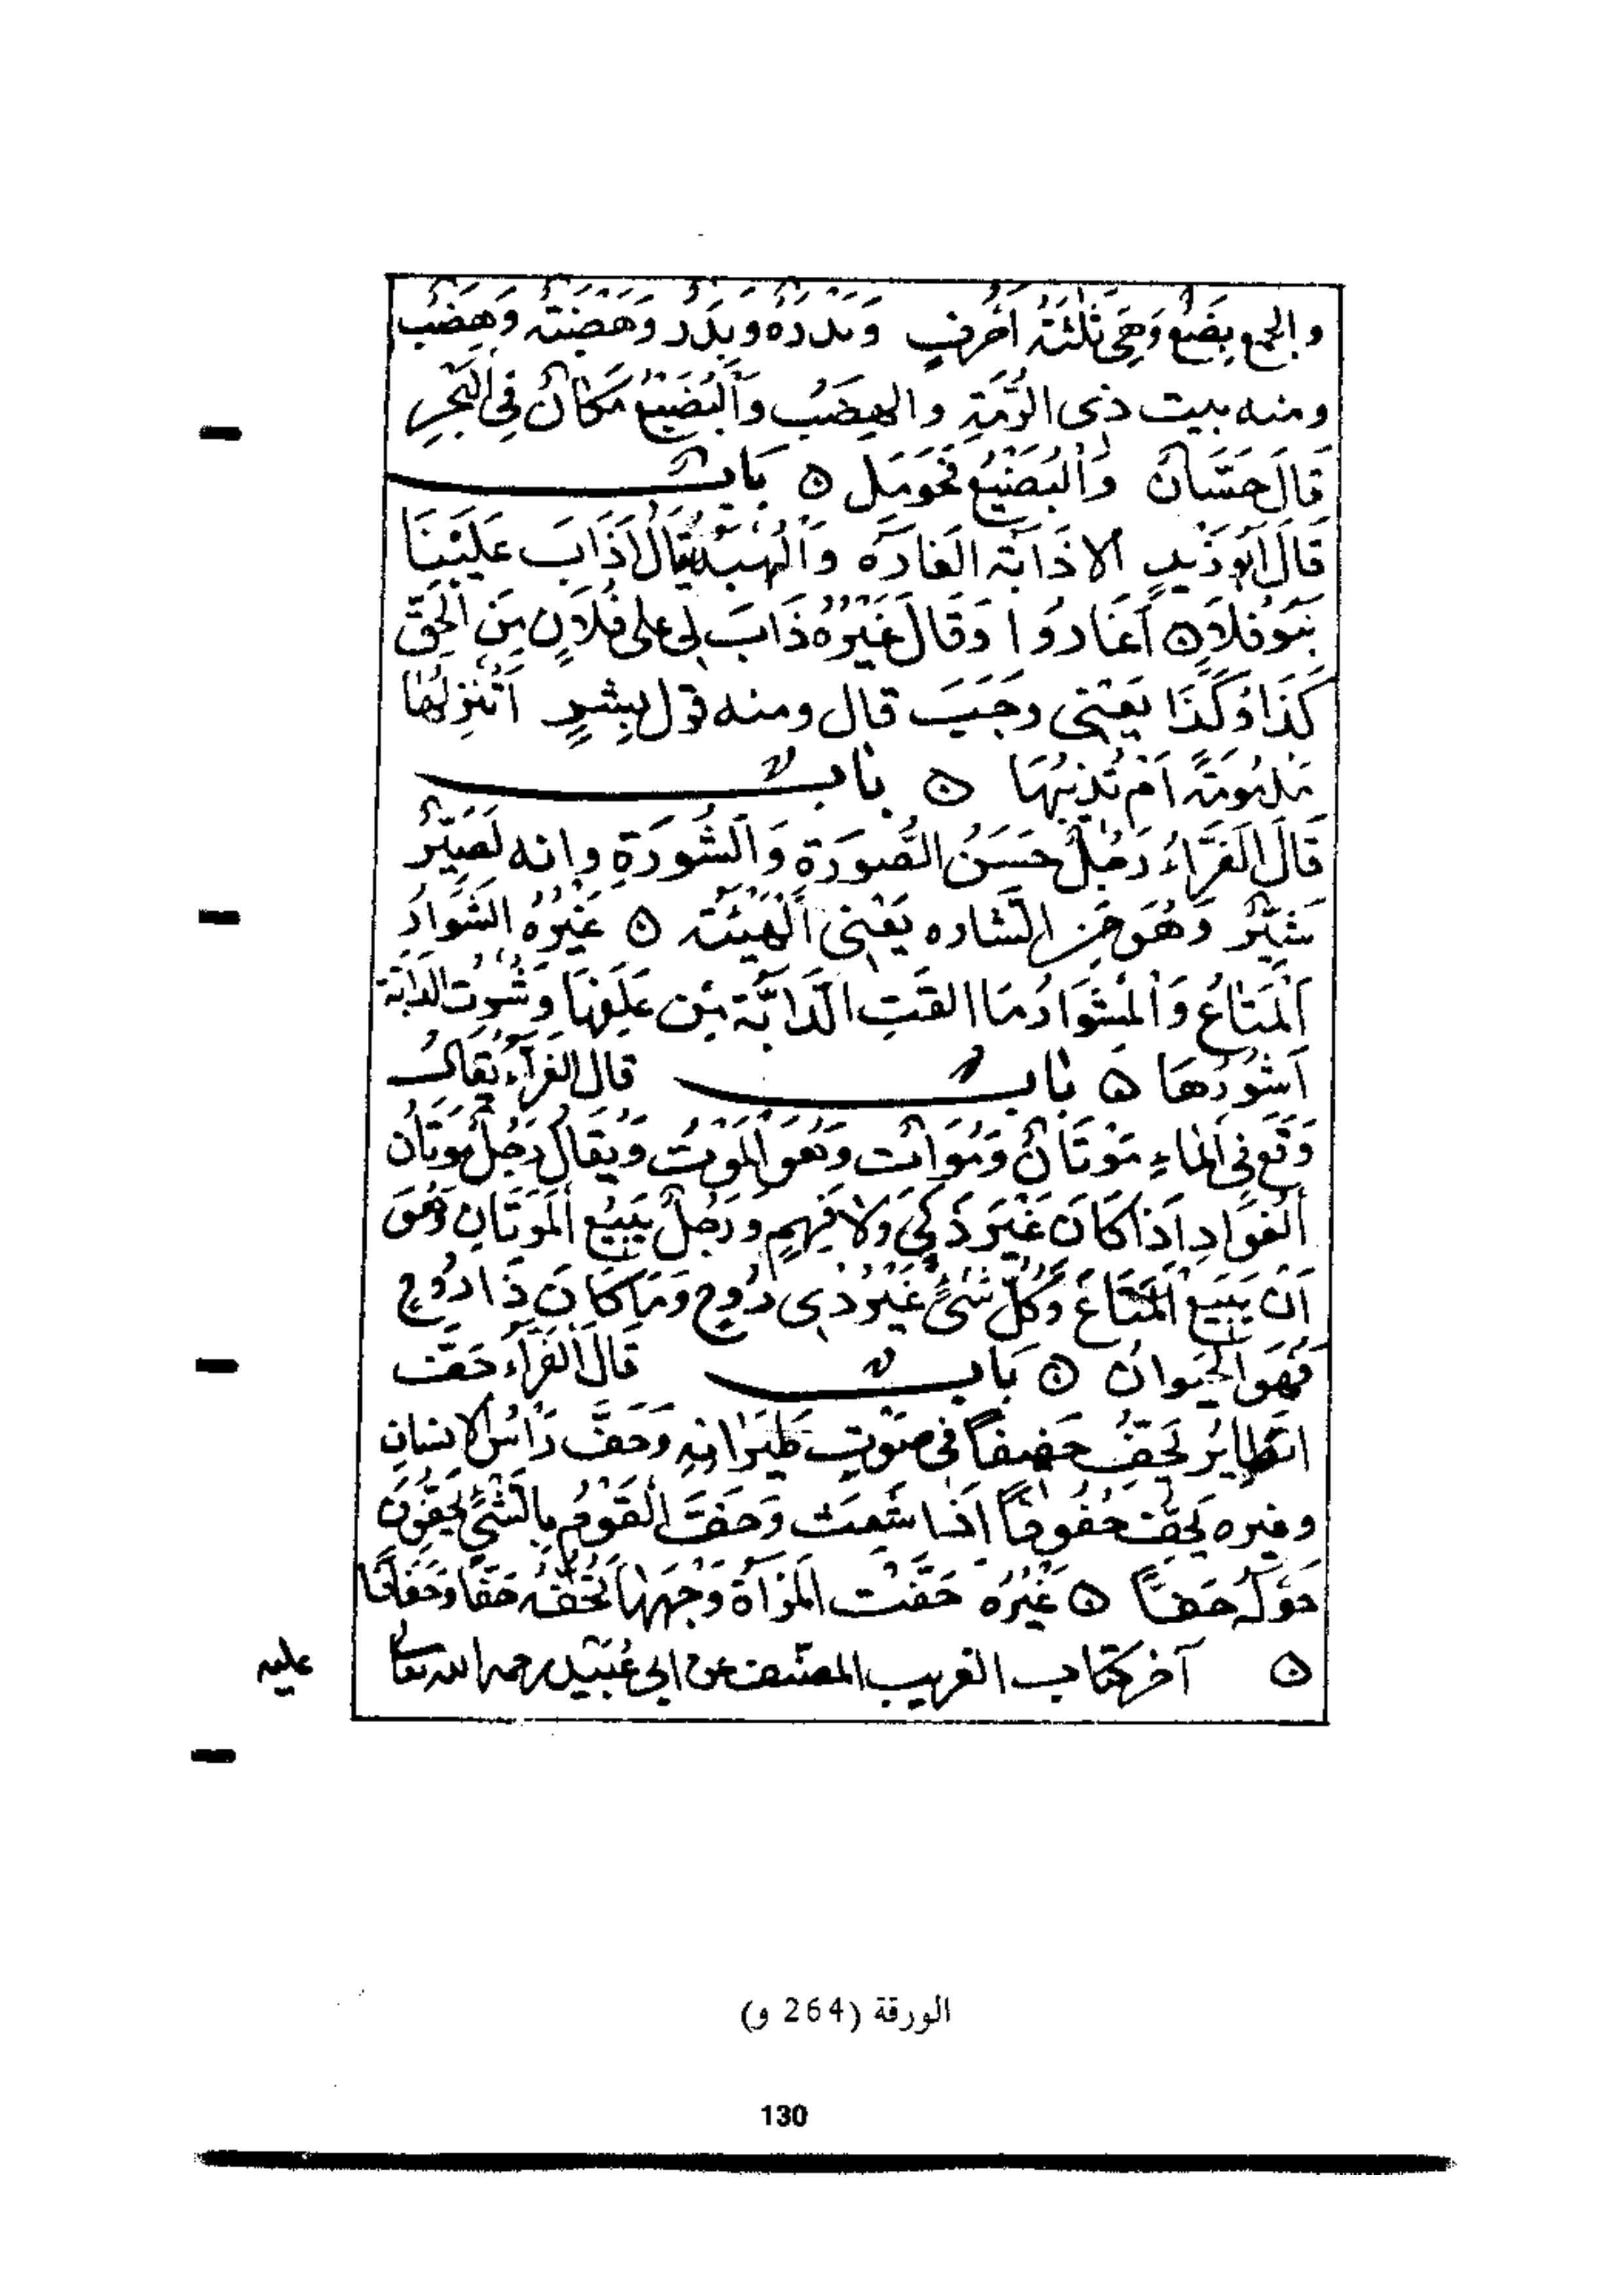 والجمع بِضَعٌ وَهِيَ ثَلٰثَةُ اَحْرُفٍ وَبَدْرَةٌ وبِدَرٌ وَهَضْبَةٌ وَهِضَبٌ
ومنه بيت ذى الرُّمَّةِ والهِضَبُ وَاَلْبُضَيْعُ مَكَانٌ فِى الْبَحْرِ
قَالَ حَسَّانُ وَاَلْبُضَيْعُ فَحَوْمَلِ ۞ بَابٌ
قَالَ اَبُو زَيْدٍ الاذَابَة الغَارَة وَالنُّهْبَةُ يُقَالُ اَذَابَ عَلَيْنَا
بَنُو فُلَانٍ اَغَارُوا وَقَالَ غَيْرُهُ ذَابَ لِى على فُلَانٍ مِنَ الْحَقِّ
كَذَا وَكَذَا يَعْنِى وَجَبَ قال ومنه قول بِشْرٍ اَتُنْزِلُهَا
مَذْمُومَةً اَمْ تُذِيبُهَا ۞ بَابٌ
قَالَ الفَرَّاءُ رَجُلٌ حَسَنُ الصُّورَةِ وَالشُّورَةِ وانه لَصَيِّرٌ
شَيِّرٌ وَهُوَ مِنَ الشاره يَعْنِى الْهَيْئَةَ ۞ غَيْرُهُ الشَّوَارُ
اَلْمَتَاعُ وَالْمِشْوَارُ مَا القَتِ الدَّابَّة مِن عَلَفِهَا وَشُرْتُ الدابَّة
اَشُورُهَا ۞ بَابٌ قال الفَرَّاءُ يُقَالُ
وَقَعَ فِى الْمَاءِ مَوْتَانٌ وَمُوَاتٌ وَهُوَ الْمَوْتُ وَيُقَالُ رَجُلٌ مَوْتَانُ
اَلْفُوَادِ اِذَا كَانَ غَيْرَ ذَكِىٍّ وَلَا فَهِمٍ وَرَجُلٌ يَبِيعُ الْمَوَتَانِ وَهُوَ
اَنْ يَبِيعَ الْمَتَاعَ وَكُلَّ شَىْءٍ غَيْرَ ذِى رُوحٍ وَمَا كَانَ ذَا رُوحٍ
فَهُوَ الحَيَوانُ ۞ بَابٌ قَالَ الفَرَّاءُ حَفَّ
الطَّايِرُ يَحِفُّ حَفِيفًا فى صَوْتِ طَيَرَانِهِ وَحَفَّ رَاْسُ الانسانِ
وغيره يَحِفُّ حُفُوفًا اِذَا شَعِثَ وَحَفَّ الْقَوْمُ بِالشَّىْءِ يَحُفُّونَ
حَوْلَهُ حَفًّا ۞ غَيْرُهُ حَفَّتِ الْمَرْاَةُ وَجْهَهَا تَحُفُّهُ حَفًّا وَحِفَافًا
۞ آخر كتاب الغريب المصنف عن ابى عُبَيْدٍ رحمه الله تعالى
عليه
الورقة (264 و)
130